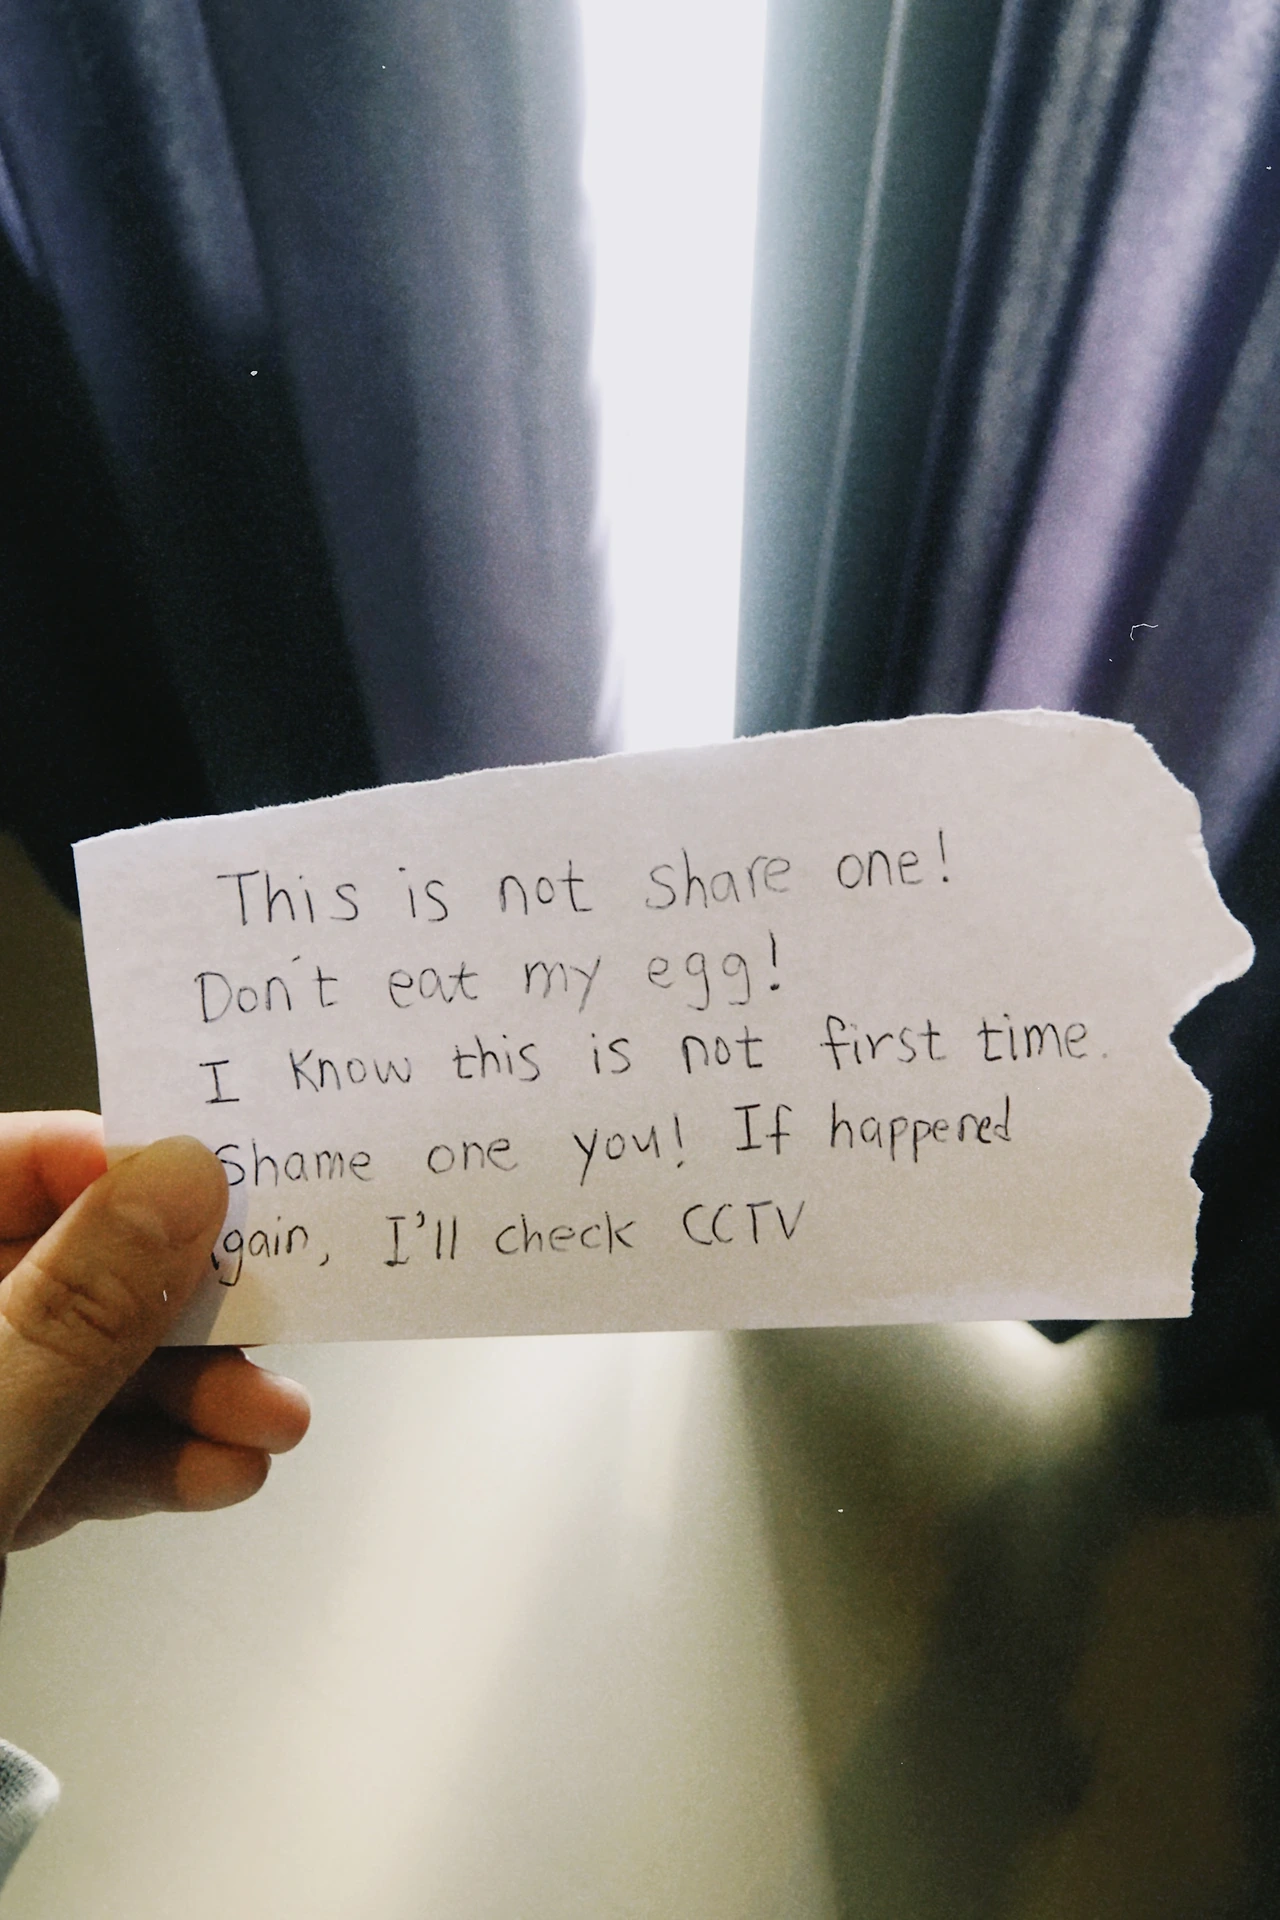 This is not share one!
Don't eat my egg!
I know this is not first time.
Shame one you! If happened
again, I'll check CCTV